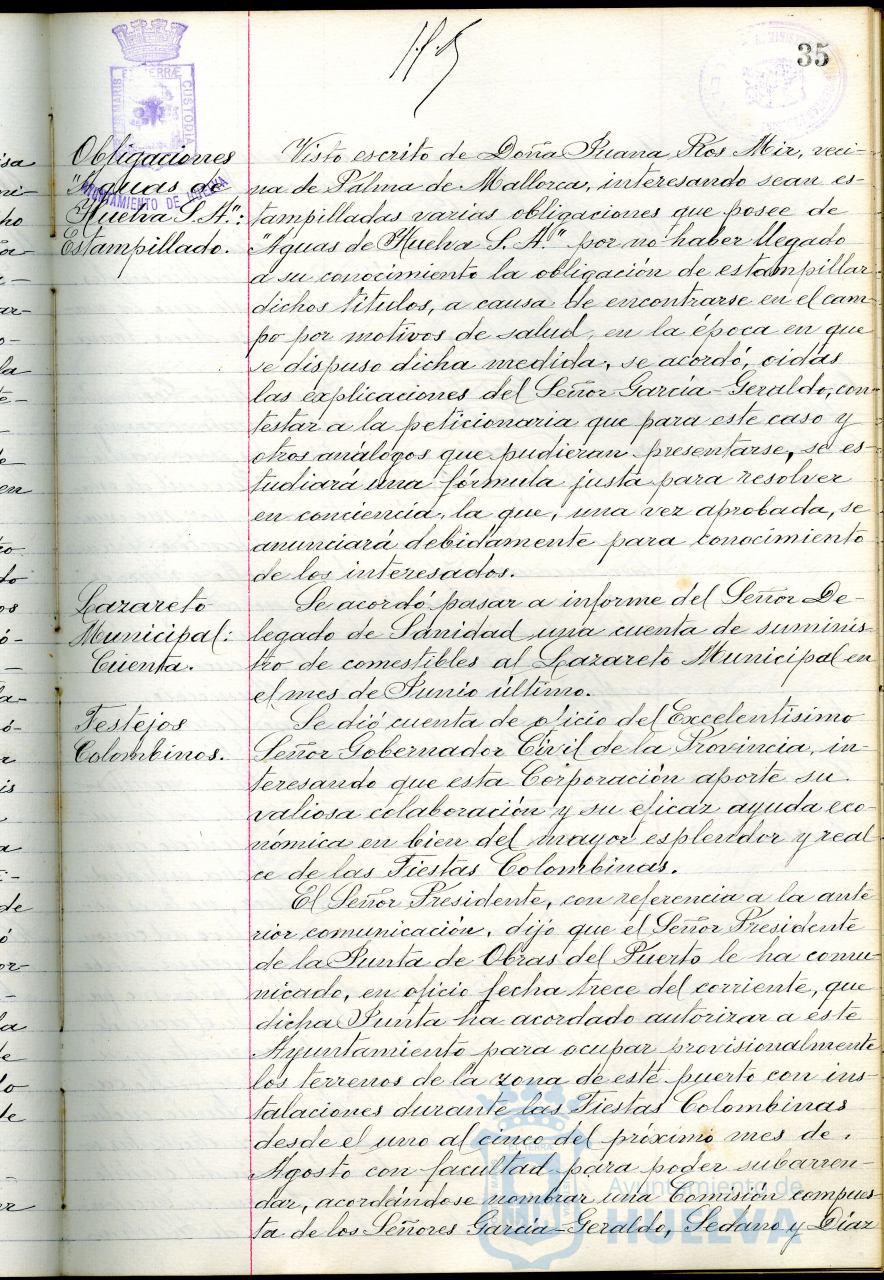 35
Obligaciones
"Aguas de
Huelva S. A.":
Estampillado.
Visto escrito de Doña Juana Ros Mir, veci-
na de Palma de Mallorca, interesando sean es-
tampilladas varias obligaciones que posee de
"Aguas de Huelva S. A." por no haber llegado
a su conocimiento la obligación de estampillar
dichos títulos, a causa de encontrarse en el cam-
po por motivos de salud, en la época en que
se dispuso dicha medida, se acordó, oidas
las explicaciones del Señor García-Geraldo, con
testar a la peticionaria que para este caso y
otros análogos que pudieran presentarse, se es-
tudiará una fórmula justa para resolver
en conciencia, la que, una vez aprobada, se
anunciará debidamente para conocimiento
de los interesados.
Lazareto
Municipal:
Cuenta.
Se acordó pasar a informe del Señor De-
legado de Sanidad una cuenta de suminis-
tro de comestibles al Lazareto Municipal en
el mes de Junio último.
Festejos
Colombinos.
Se dió cuenta de oficio del Excelentisimo
Señor Gobernador Civil de la Provincia, in-
teresando que esta Corporación aporte su
valiosa colaboración y su eficaz ayuda eco-
nómica en bien del mayor esplendor y real
ce de las Fiestas Colombinas.
El Señor Presidente, con referencia a la ante
rior comunicación, dijo que el Señor Presidente
de la Junta de Obras del Puerto le ha comu-
nicado, en oficio fecha trece del corriente, que
dicha Junta ha acordado autorizar a este
Ayuntamiento para ocupar provisionalmente
los terrenos de la zona de este puerto con ins-
talaciones durante las Fiestas Colombinas
desde el uno al cinco del próximo mes de
Agosto con facultad para poder subarren-
dar, acordándose nombrar una Comisión compues-
ta de los Señores García-Geraldo, Sedano y Díaz
AYUNTAMIENTO DE HUELVA
Ayuntamiento de
HUELVA